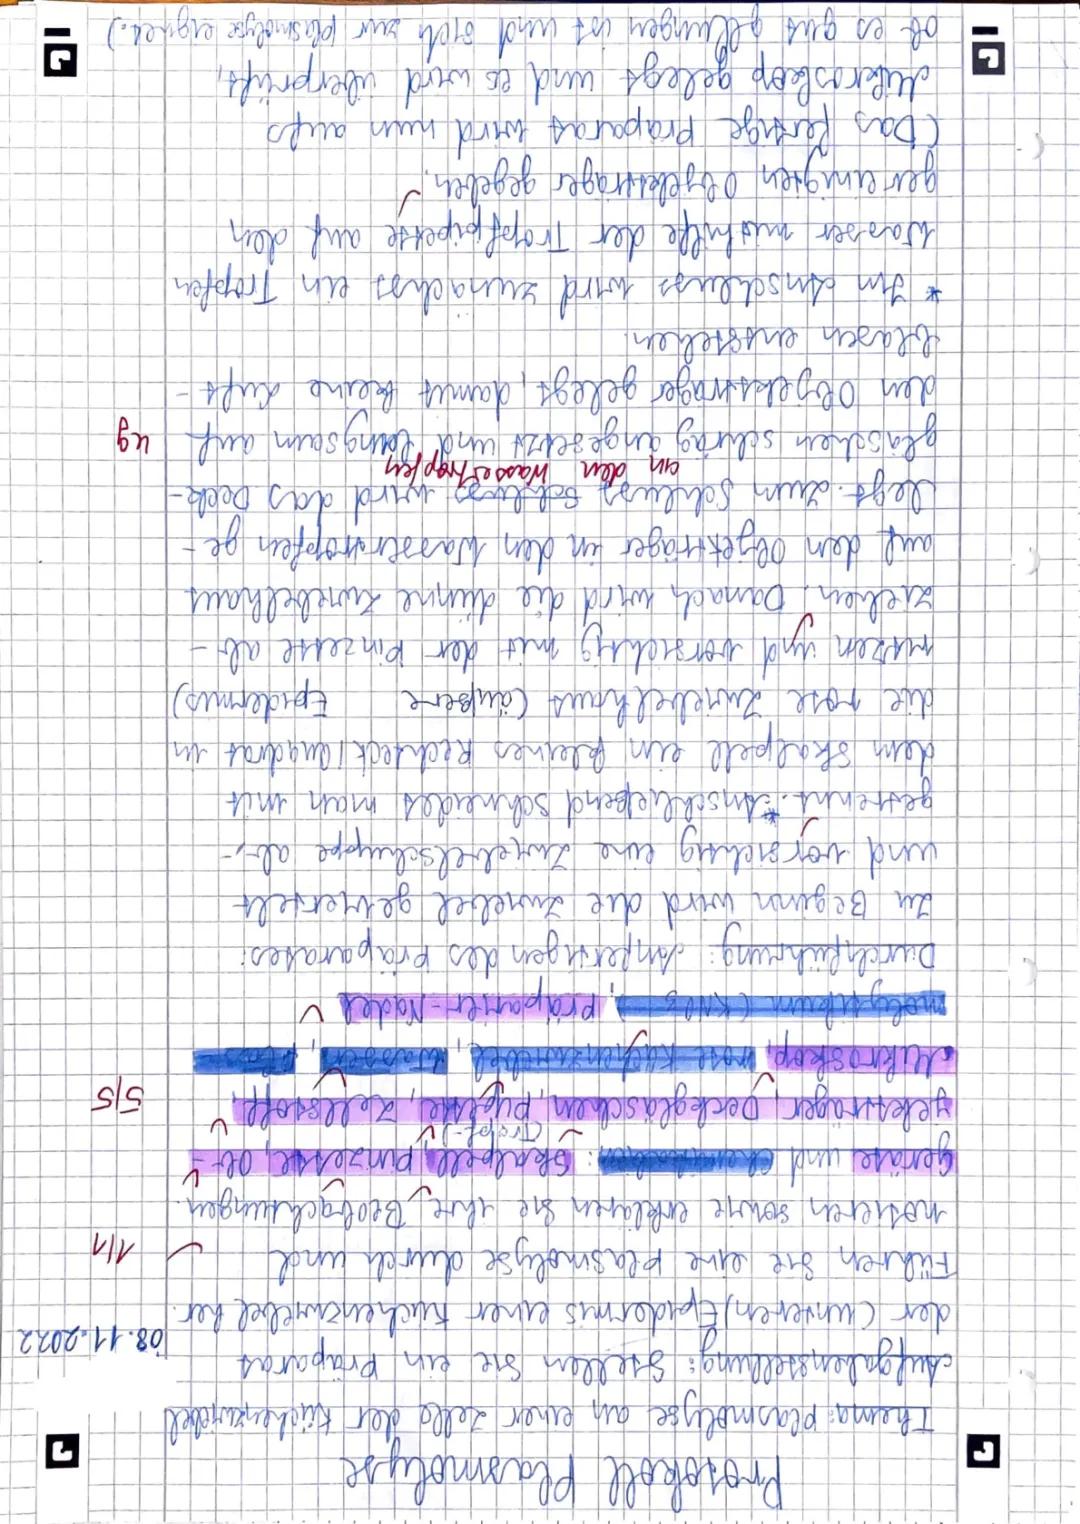 Protokoll Plasmolyse
Thema: Plasmolyse an einer Zelle der Küchenzwiebel
Aufgabenstellung: Stellen Sie ein Präparat
08.11.2022
der (unteren) Epidermis einer Küchenzwiebel her.
Führen Sie eine Plasmolyse durch und
1/1
notieren sowie erklären Sie ihre Beobachtungen.
Geräte und Chemikalien: Skalpell, Pinzette, Ob-
(Tropf-)
jektträger, Deckgläschen, Pipette, Zellstoff,
5/5
Mikroskop, rote Küchenzwiebel, Wasser, Plas
molytikum (KNO3), Präparier-Nadel
Durchführung: Anfertigen des Präparates:
Zu Beginn wird die Zwiebel geviertelt
und vorsichtig eine Zwiebelschuppe ab-
getrennt.* Anschließend schneidet man mit
dem Skalpell ein kleines Rechteck/Quadrat in
die rote Zwiebelhaut (äußere Epidermis)
ritzen und vorsichtig mit der Pinzette ab-
ziehen. Danach wird die dünne Zwiebelhaut
auf dem Objektträger in den Wassertropfen ge-
legt. Zum Schluss Schluss wird das Deck-
an den Wassertropfen
gläschen schräg angesetzt und langsam auf
ug
den Objektträger gelegt, damit keine Luft-
blasen entstehen.
* Im Anschluss wird zunächst ein Tropfen
Wasser mithilfe der Tropfpipette auf den
gereinigten Objektträger gegeben.
(Das fertige Präparat wird nun aufs
Mikroskop gelegt und es wird überprüft,
ob es gut gelungen ist und sich zur Plasmolyse eignet.)